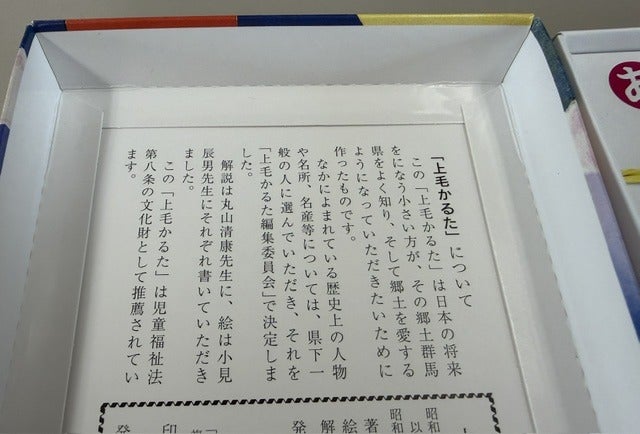 「上毛かるた」について
この「上毛かるた」は日本の将来
をになう小さい方が、その郷土群馬
県をよく知り、そして郷土を愛する
ようになっていただきたいために
作ったものです。
なかによまれている歴史上の人物
や名所、名産等については、県下一
般の人に選んでいただき、それを
「上毛かるた編集委員会」で決定しま
した。
解説は丸山清康先生に、絵は小見
辰男先生にそれぞれ書いていただき
ました。
この「上毛かるた」は児童福祉法
第八条の文化財として推薦されてい
ます。
昭和
昭和
以
著
絵
解
発
印
発
お